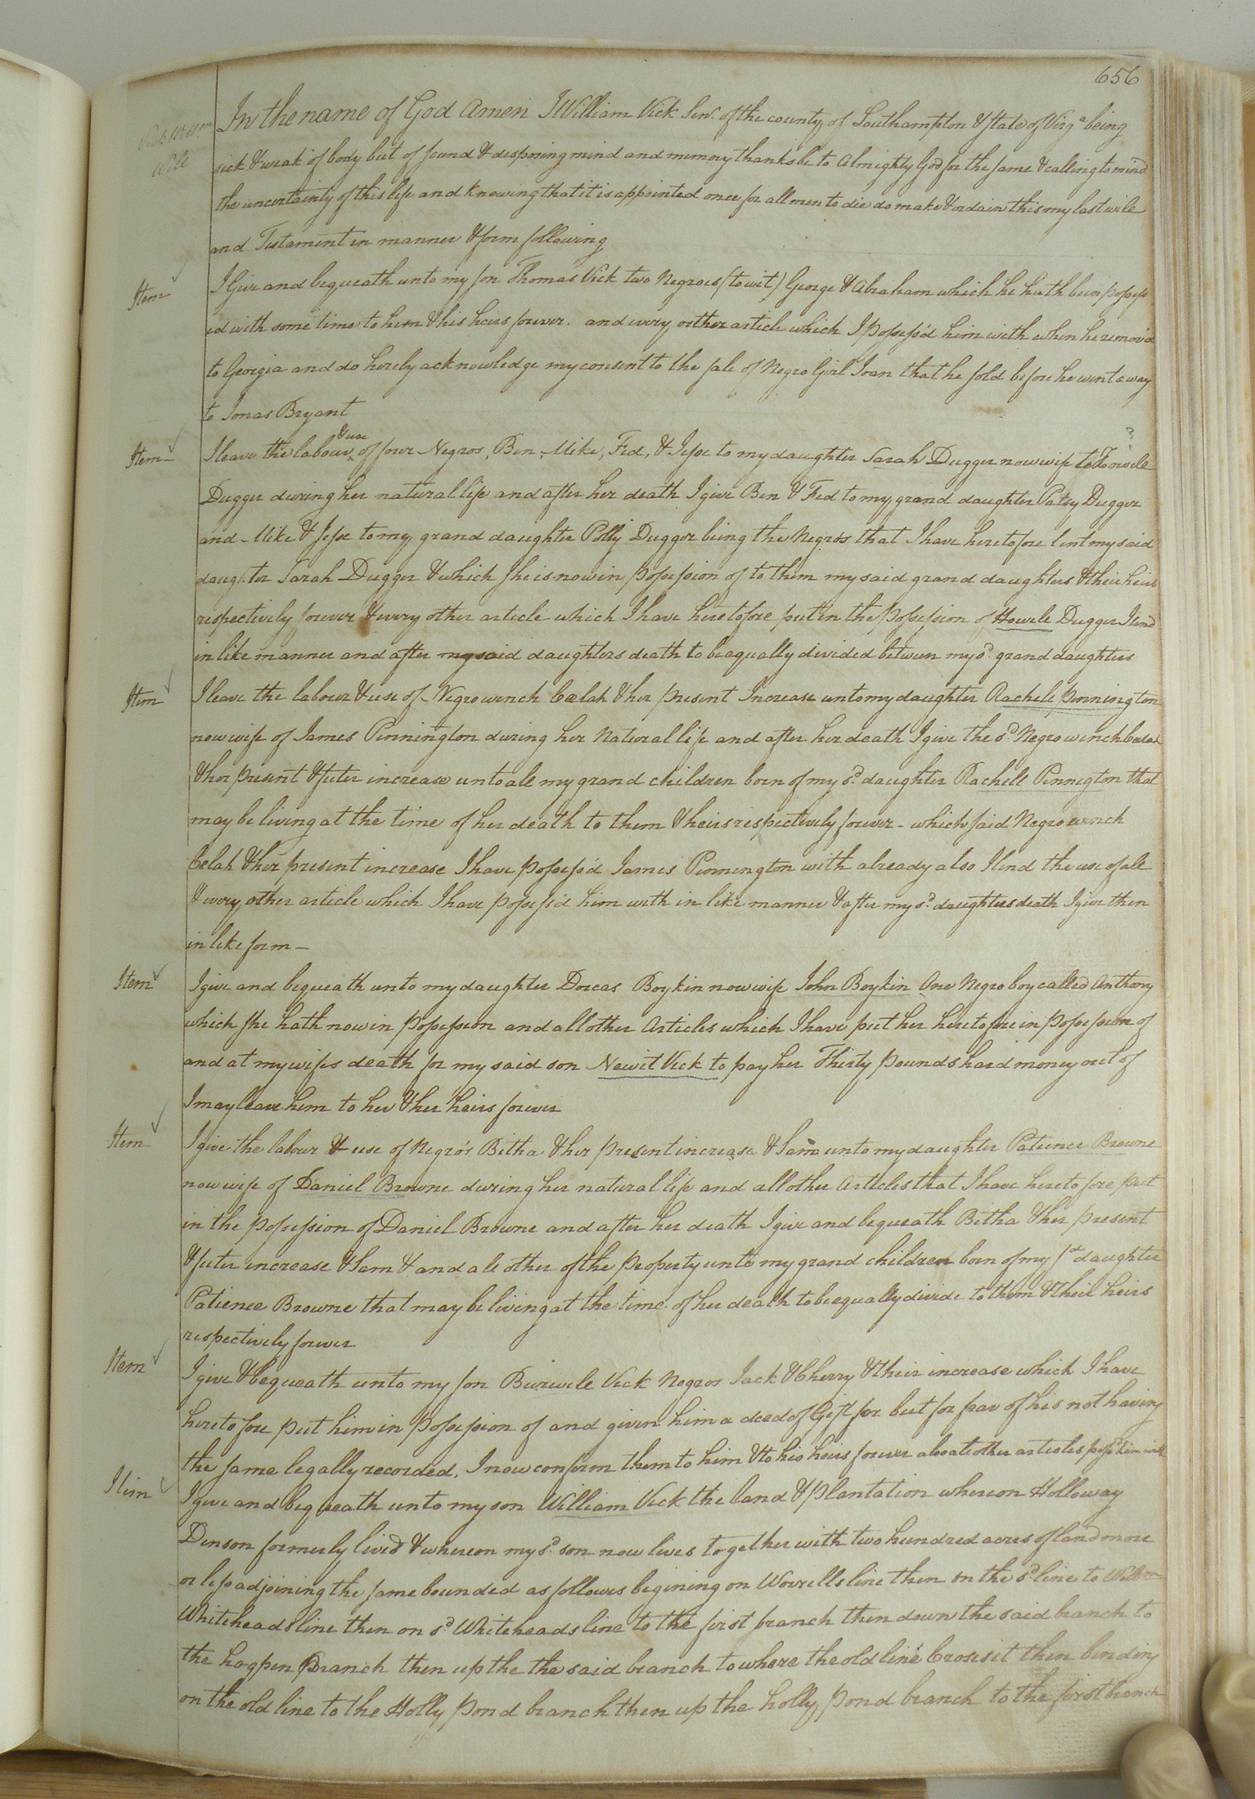 656
Will
In the name of God Amen I William Vick Senr. of the county of Southampton & State of Virga being
sick & weak of body but of sound & desposing mind and memory thanks be to Almighty God for the same & calling to mind
the uncertainty of this life and knowing that it is appointed once for all men to die do make & ordain this my last will
and Testament in manner & form following
Item I Give and bequeath unto my son Thomas Vick two Negroes (to wit) George & Abraham which he hath been possess
ed with some time to him & his heirs forever. and every other article which I possess'd him with when he remov'd
to Georgia and do hereby acknowledge my consent to the sale of Negro Girl Joan that he sold before he went away
to Jonas Bryant
Item I leave the labour & use of four Negros, Ben, Mike, Fed, & Jesse to my daughter Sarah Dugger now wife to
Dugger during her natural life and after her death I give Ben & Fed to my grand daughter Patsy Dugger
and Mike & Jesse to my grand daughter Polly Dugger being the Negros that I have heretofore lent my said
daughter Sarah Dugger & which she is now in possession of to them my said grand daughters & their heirs
respectively forever & every other article which I have heretofore put in the possession of Howele Dugger I lend
in like manner and after my said daughters death to be equally divided between my sd. grand daughters
Item I leave the labour & use of Negro wench Celah & her present Increase unto my daughter Rachele Pennington
now wife of James Pennington during her Natural life and after her death I give the sd. Negro wench Celah
& her present & futer increase unto all my grand children born of my sd. daughter Rachell Pennigton that
may be living at the time of her death to them & heirs respectively forever - which said Negro wench
Celah & her present increase I have possess'd James Pennington with already also I lend the use of all
& every other article which I have possess'd him with in like manner & after my sd. daughters death I give them
in like form -
Item I give and bequeath unto my daughter Dorcas Boykin now wife John Boykin One Negro boy called Anthony
which she hath now in possession and all other Articles which I have put her heretofore in possession of
and at my wifes death for my said son Newit Vick to pay her Thirty pounds hard money out of
I may leave him to her & her heirs forever
Item I give the labour & use of Negro's Bitha & her present increase & Sam unto my daughter Patience Browne
now wife of Daniel Browne during her natural life and all other Articles that I have heretofore put
in the possession of Daniel Browne and after her death I give and bequeath Betha & her present
& futer increase & Sam & and all other of the property unto my grand children born of my sd daughter
Patience Browne that may be living at the time of her death to be equally divide to them & their heirs
respectively forever
Item I give & bequeath unto my son Burwele Vick Negros Jack & Cherry & their increase which I have
heretofore put him in possession of and given him a deed of Gift for but for fear of his not having
the same legally recorded, I now confirm them to him & to his heirs forever
Item I give and bequeath unto my son William Vick the land & plantation whereon Holloway
Denson formerly lived & whereon my sd. son now lives together with two hundred acres of land more
or less adjoining the same bounded as follows begining on Worrells line then on the sd line to
Whiteheads line then on sd Whiteheads line to the first branch then down the said branch to
the hogpen Branch then up the the said branch to where the old line Cross it then binding
on the old line to the Holly pond branch then up the holly pond branch to the first branch